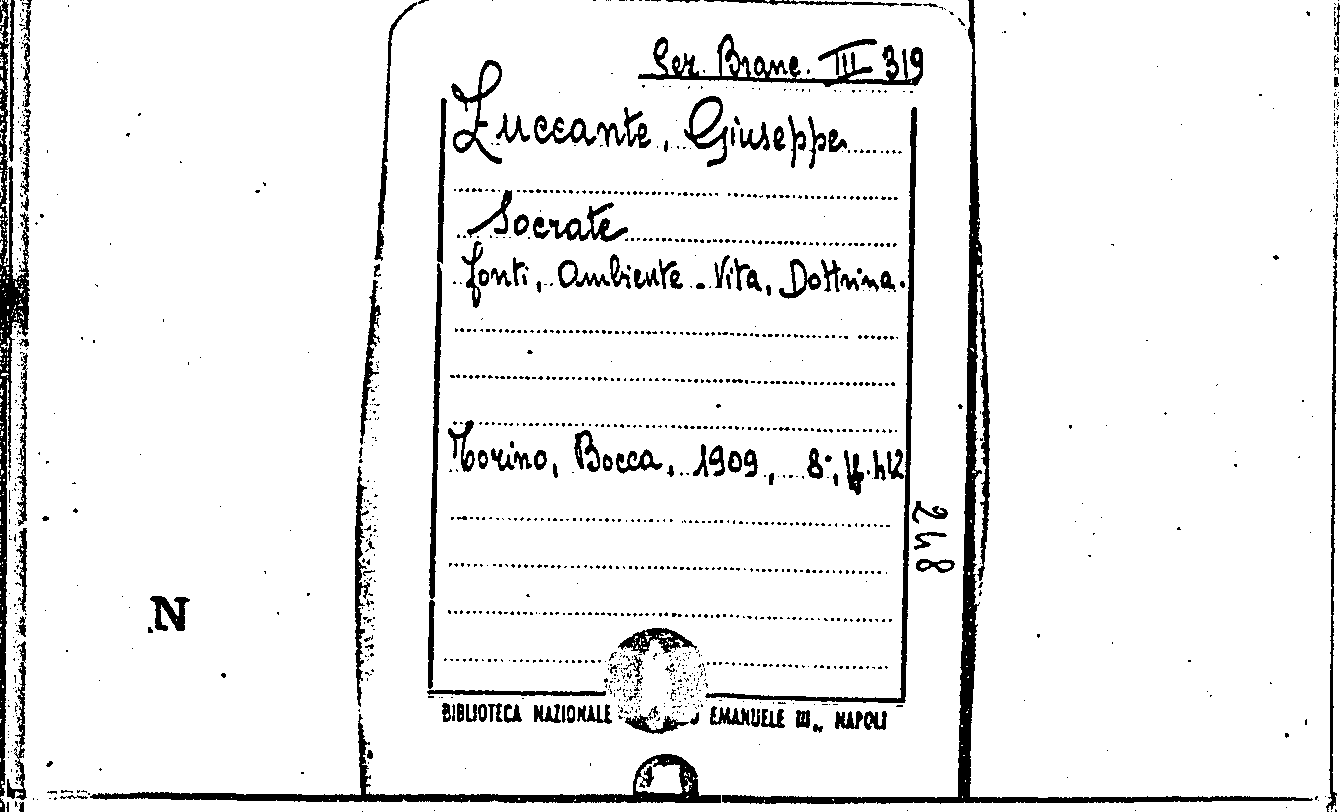 Ser. Branc. III 319
Zuccante, Giuseppe
Socrate
Fonti, Ambiente - Vita, Dottrina.
Torino, Bocca, 1909, 8°, pp. 412
248
N
BIBLIOTECA NAZIONALE EMANUELE III„ NAPOLI